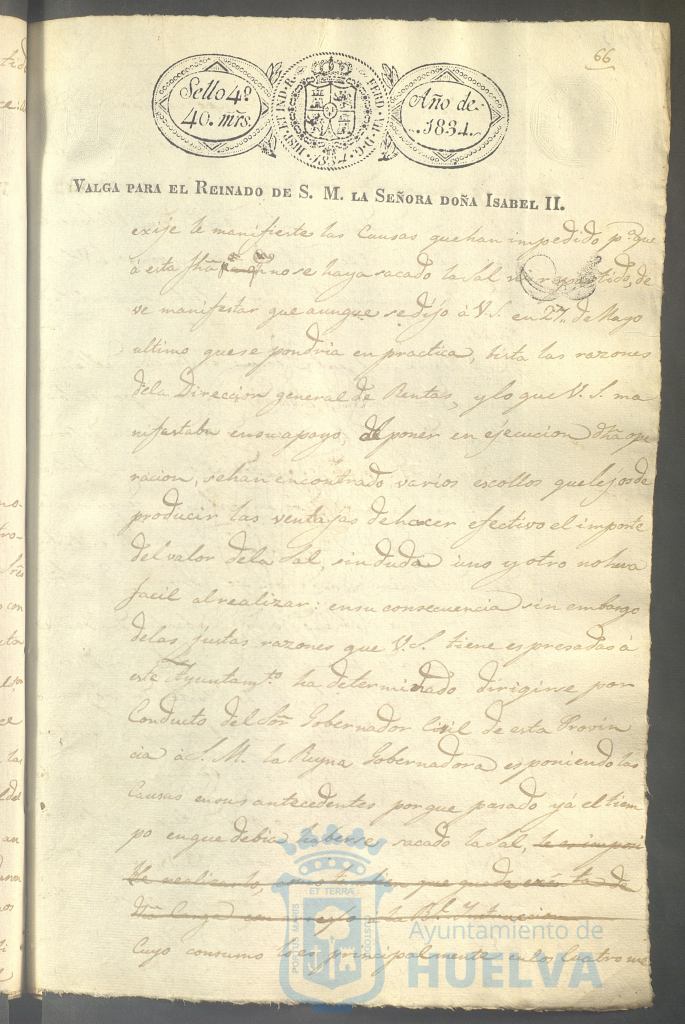 66
Sello 4º
40. mrs.
HISP. ET IND. R. FERD. VII. D. G. 1834
Año de
1834.
VALGA PARA EL REINADO DE S. M. LA SEÑORA DOÑA ISABEL II.
exije le manifieste las Causas que han impedido pª que
á esta fha no se haya sacado la Sal repartido, de
ve manifestar que aunque se dijo á V.S. en 27,, de Mayo
ultimo que se pondria en practica, bista las razones
dela Direccion general de Rentas, y lo que V. S. ma
nifestaba en su apoyo, de poner en ejecucion dha ope
racion, se han encontrado varios escollos que lejos de
producir las ventajas de hacer efectivo el importe
del valor dela Sal, sin duda uno y otro no hera
facil al realizar: en su consecuencia sin embargo
delas justas razones que V.S. tiene espresadas á
este Ayuntamtº ha determinado dirigirse por
Conducto del Sor Gobernador Civil de esta Provin
cia á S. M. la Reyna Gobernadora esponiendo las
Causas en sus antecedentes porque pasado yá el tiem
po en que debia haberse sacado la Sal, le es imposi
ble realizarlo, como tambien que quede exsenta de
dha Carga con arreglo á la Rl. Instruccion
Cuyo consumo lo es principalmente en los Cuatro me
PORTUS MARIS ET TERRAE CUSTODIA
Ayuntamiento de
HUELVA